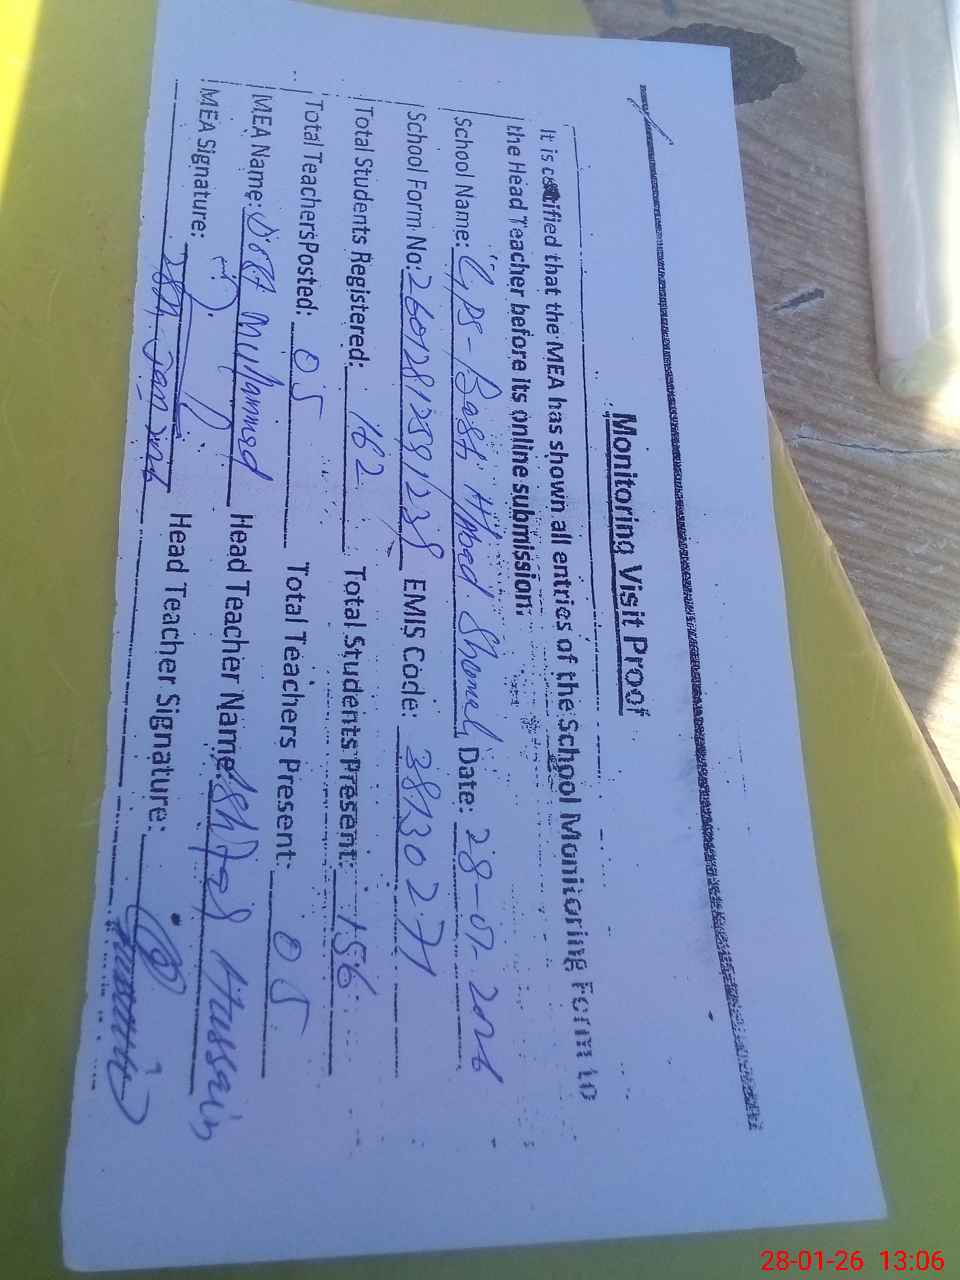 Monitoring Visit Proof
It is certified that the MEA has shown all entries of the School Monitoring Form to
the Head Teacher before its online submission.
School Name: GPS - Basti Abad Shomali Date: 28-01-2026
School Form No: 260128125912 EMIS Code: 38130271
Total Students Registered: 162 Total Students Present: 156
Total Teachers Posted: 05 Total Teachers Present: 05
MEA Name: Dost Muhammad Head Teacher Name: Ishfaq Hussain
MEA Signature: Head Teacher Signature:
28-01-26 13:06